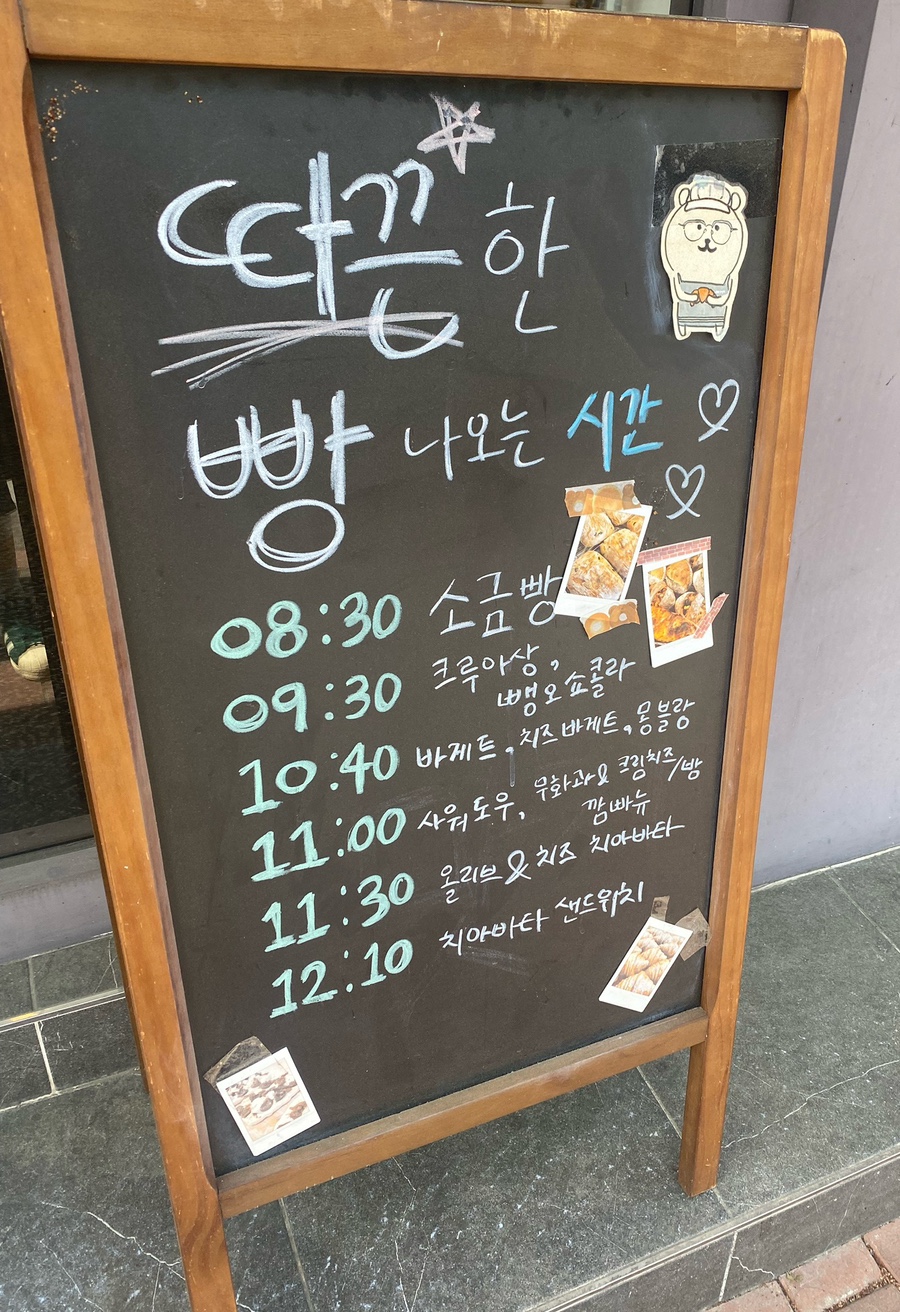 따끈한
빵 나오는 시간
08:30 소금빵
09:30 크루아상,
뺑오쇼콜라
10:40 바게트, 치즈바게트, 몽블랑
11:00 사워도우, 무화과& 크림치즈/밤
깜빠뉴
11:30 올리브&치즈 치아바타
12:10 치아바타 샌드위치